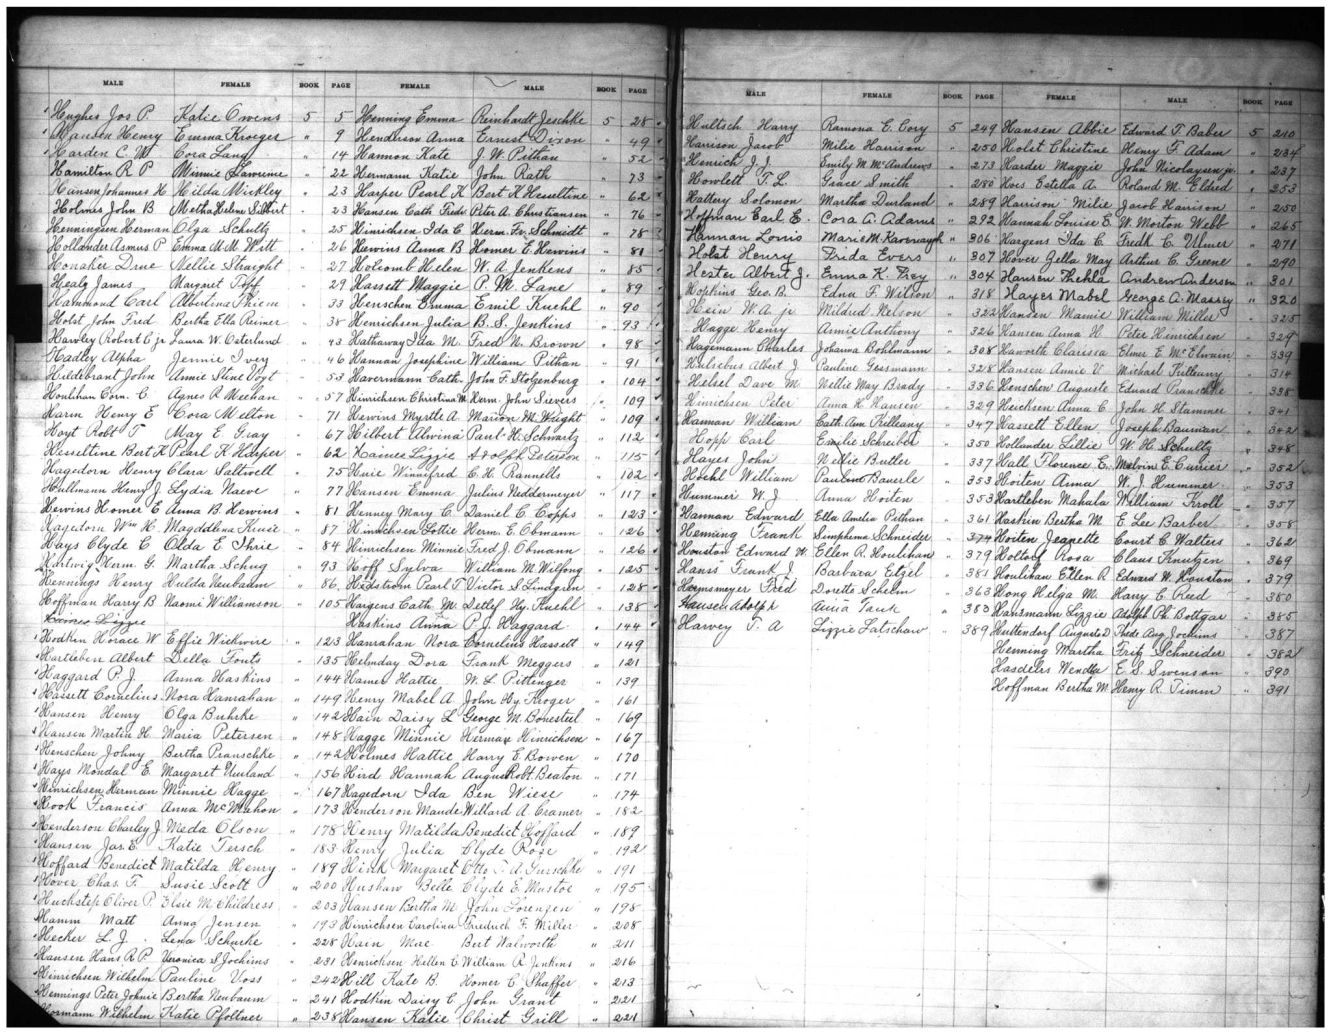 MALE FEMALE BOOK PAGE FEMALE MALE BOOK PAGE
Hughes Jos P. Katie Owens 5 5 Henning Emma Reinhardt Jeschke 5 28
Hansen Henry Emma Kroeger " 9 Henderson Anna Ernest Dixon " 49
Harden C. W Cora Lang " 14 Hannon Kate J. W. Pithan " 52
Hamilton R P Minnie Lawrence " 22 Hermann Katie John Rath " 73
Hansen Johannes H Hilda Mickley " 23 Harper Pearl K Bert K Hesseltine " 62
Holmes John B Metha Helene Sibbert " 23 Hansen Cath. Fredr. Peter A. Christiansen " 76
Henningsen Herman Olga Schultz " 25 Hinrichsen Ida C Herm. Fr. Schmidt " 78
Hollander Asmus P Emma M. M. Witt " 26 Hewins Anna B Homer E. Hewins " 81
Honaker Drue Nellie Straight " 27 Holcomb Helen W. A. Jenkens " 85
Healy James Margaret Toff " 29 Hassett Maggie P. M. Lane " 89
Hammond Carl Albulina Thiem " 33 Henschen Emma Emil Kuehl " 90
Holst John Fred Bertha Ella Reimer " 38 Henrichsen Julia B. S. Jenkins " 93
Hawley Robert C. jr Laura W. Osterlund " 43 Hathaway Ida M. Fred N. Brown " 98
Hadley Alpha Jennie Ivey " 46 Hannan Josephine William Pithan " 91
Hildebrant John Annie Stine Vogt " 53 Havermann Cath. John F. Stolzenburg " 104
Houlihan Corn. C. Agnes R Meehan " 57 Hinrichsen Christina M. Herm. John Sievers " 109
Harm Henry E Cora Melton " 71 Hewins Myrtle A. Marion M. Wright " 109
Hoyt Robt T May E. Gray " 67 Hilbert Alvina Paul H. Schwartz " 112
Hesseltine Bert K Pearl K Harper " 62 Haines Lizzie Adolph Peterson " 115
Hagedorn Henry Clara Saltwell " 75 Huie Winnifred C. H. Rannells " 102
Hullmann Henry J. Lydia Naeve " 77 Hansen Emma Julius Neddermeyer " 117
Hewins Homer E Anna B. Hewins " 81 Henney Mary C. Daniel C. Copps " 123
Hagedorn Wm H. Magdalena Kruse " 87 Hinrichsen Lottie Herm. E. Obmann " 126
Hays Clyde C Olda E Ihrie " 84 Hinrichsen Minnie Fred J. Obmann " 126
Hartwig Herm G. Martha Schug " 93 Hoff Sylva William M. Wilfong " 125
Hennings Henry Hulda Neubaum " 86 Hidstrom Pearl T Victor S. Lindgren " 128
Hoffman Harry B Naomi Williamson " 105 Hargens Cath. M. Detlef Hy. Kuehl " 138
Haines Lizzie Haskins Anna P. J. Haggard " 144
Hodkin Horace W Effie Wickwire " 123 Hanrahan Nora Cornelius Hassett " 149
Hartleben Albert Della Fouts " 135 Helmday Dora Frank Meggers " 121
Haggard P. J. Anna Haskins " 144 Hamer Hattie W. L Pittenger " 139
Hassett Cornelius Nora Hanrahan " 149 Henry Mabel A. John Hy. Kroger " 161
Hansen Henry Olga Buhrke " 142 Hain Daisy L George M. Bonesteel " 169
Hansen Martin H. Maria Petersen " 148 Hagge Minnie Herman Hinrichsen " 167
Henschen Johny Bertha Pranschke " 142 Holmes Hattie Harry E. Bowen " 170
Hays Mondal E. Margaret Neuland " 156 Hird Hannah August Robt. Beaton " 171
Hinrichsen Herman Minnie Hagge " 167 Hagedorn Ida Ben Wiese " 174
Hook Francis Anna McMahon " 173 Henderson Maude Willard A. Cramer " 182
Henderson Charley J. Meda Olson " 178 Henry Matilda Benedict Hoffard " 189
Hansen Jas. E. Katie Tersch " 183 Henry Julia Clyde Rose " 192
Hoffard Benedict Matilda Henry " 189 Hink Margaret Otto A. Gurschke " 191
Hover Chas. F. Susie Scott " 200 Hushaw Belle Clyde E. Mustoe " 195
Huckstep Oliver P. Elsie M. Childress " 203 Hansen Bertha M. John Lorenzen " 198
Hamm Matt Anna Jensen " 193 Hinrichsen Carolina Friedrich F. Miller " 208
Hecker L. J. Lena Schurke " 228 Hain Mae Bert Walworth " 211
Hansen Hans R. P. Veronica S. Jochims " 231 Henricksen Hellen C William R. Jenkins " 216
Hinrichsen Wilhelm Pauline Voss " 242 Hill Kate B. Homer C. Shaffer " 213
Hennings Peter Johnie Bertha Neubaum " 241 Hodkin Daisy C. John Grant " 221
Hormann Wilhelm Katie Pfoltner " 238 Hansen Katie Christ Grill " 221
MALE FEMALE BOOK PAGE FEMALE MALE BOOK PAGE
Hultsch Harry Ramona E. Cory 5 249 Hansen Abbie Edward T. Baber 5 210
Harrison Jacob Milie Harrison " 250 Holst Christine Henry F. Adam " 234
Henrich J. J. Emily M. McAndrews " 273 Harder Maggie John Nicolaysen jr. " 237
Howlett T. L. Grace Smith " 280 Hoes Estella A. Roland M. Eldred " 253
Hattery Solomon Martha Durland " 289 Harrison Milie Jacob Harrison " 250
Hoffman Earl E. Cora A. Adams " 292 Hannah Louise E. W. Morton Webb " 265
Hannan Louis Marie M. Kavenaugh " 306 Hargens Ida C. Fredk C. Ulmer " 271
Holst Henry Frida Evers " 307 Hover Zella May Arthur C. Greene " 290
Hester Albert J. Emma K. Frey " 304 Hansen Thekla Andrew Anderson " 301
Hopkins Geo. B. Edna F. Wilson " 318 Hayes Mabel George A. Massey " 320
Hein W. A. jr Mildred Nelson " 322 Hansen Mamie William Miller " 325
Hagge Henry Annie Anthony " 326 Hansen Anna H Peter Hinrichsen " 329
Hagemann Charles Johanna Bohlmann " 308 Haworth Claressa Elmer E. McElwain " 339
Hulsebus Albert J. Pauline Gersmann " 328 Hansen Annie V Michael Killenny " 314
Helsel Dave M Nellie May Brady " 336 Henschen Auguste Edward Pranschke " 338
Hinrichsen Peter Anna H Hansen " 329 Heicksen Anna C. John H. Stammer " 341
Hannan William Cath. Ann Killeany " 347 Hassett Ellen Joseph Bauman " 342
Hopp Carl Emilie Schreiber " 350 Hollander Lillie W. H. Schultz " 348
Hayes John Nellie Butler " 337 Hall Florence E. Melvin E. Currier " 352
Hoehl William Pauline Bauerle " 353 Hoiten Anna W. J. Hummer " 353
Hummer W. J Anna Hoiten " 353 Hartleben Mahala William Kroll " 357
Hannan Edward Ella Amelia Pithan " 361 Haskin Bertha M. E. Lee Barber " 358
Henning Frank Simphema Schneider " 374 Hoiten Jeanette Court C. Walters " 362
Houston Edward W. Ellen R. Houlihan " 379 Holtorf Rosa Claus Knutzen " 369
Hanis Frank J. Barbara Etzel " 381 Houlihan Ellen R. Edward W. Houston " 379
Harmsmeyer Fred Doretta Schelm " 363 Hong Helga M. Harry E. Reed " 380
Hansen Adolph Anna Tank " 383 Hansmann Lizzie Adolph Ph. Bottgar " 385
Harvey T. A Lizzie Latschaw " 389 Huttendorf Augusta D Fredr. Aug. Jochims " 387
Henning Martha Fritz Schneider " 382
Hasdelrs Wendla E. S. Swenson " 390
Hoffman Bertha M. Henry R. Timm " 391